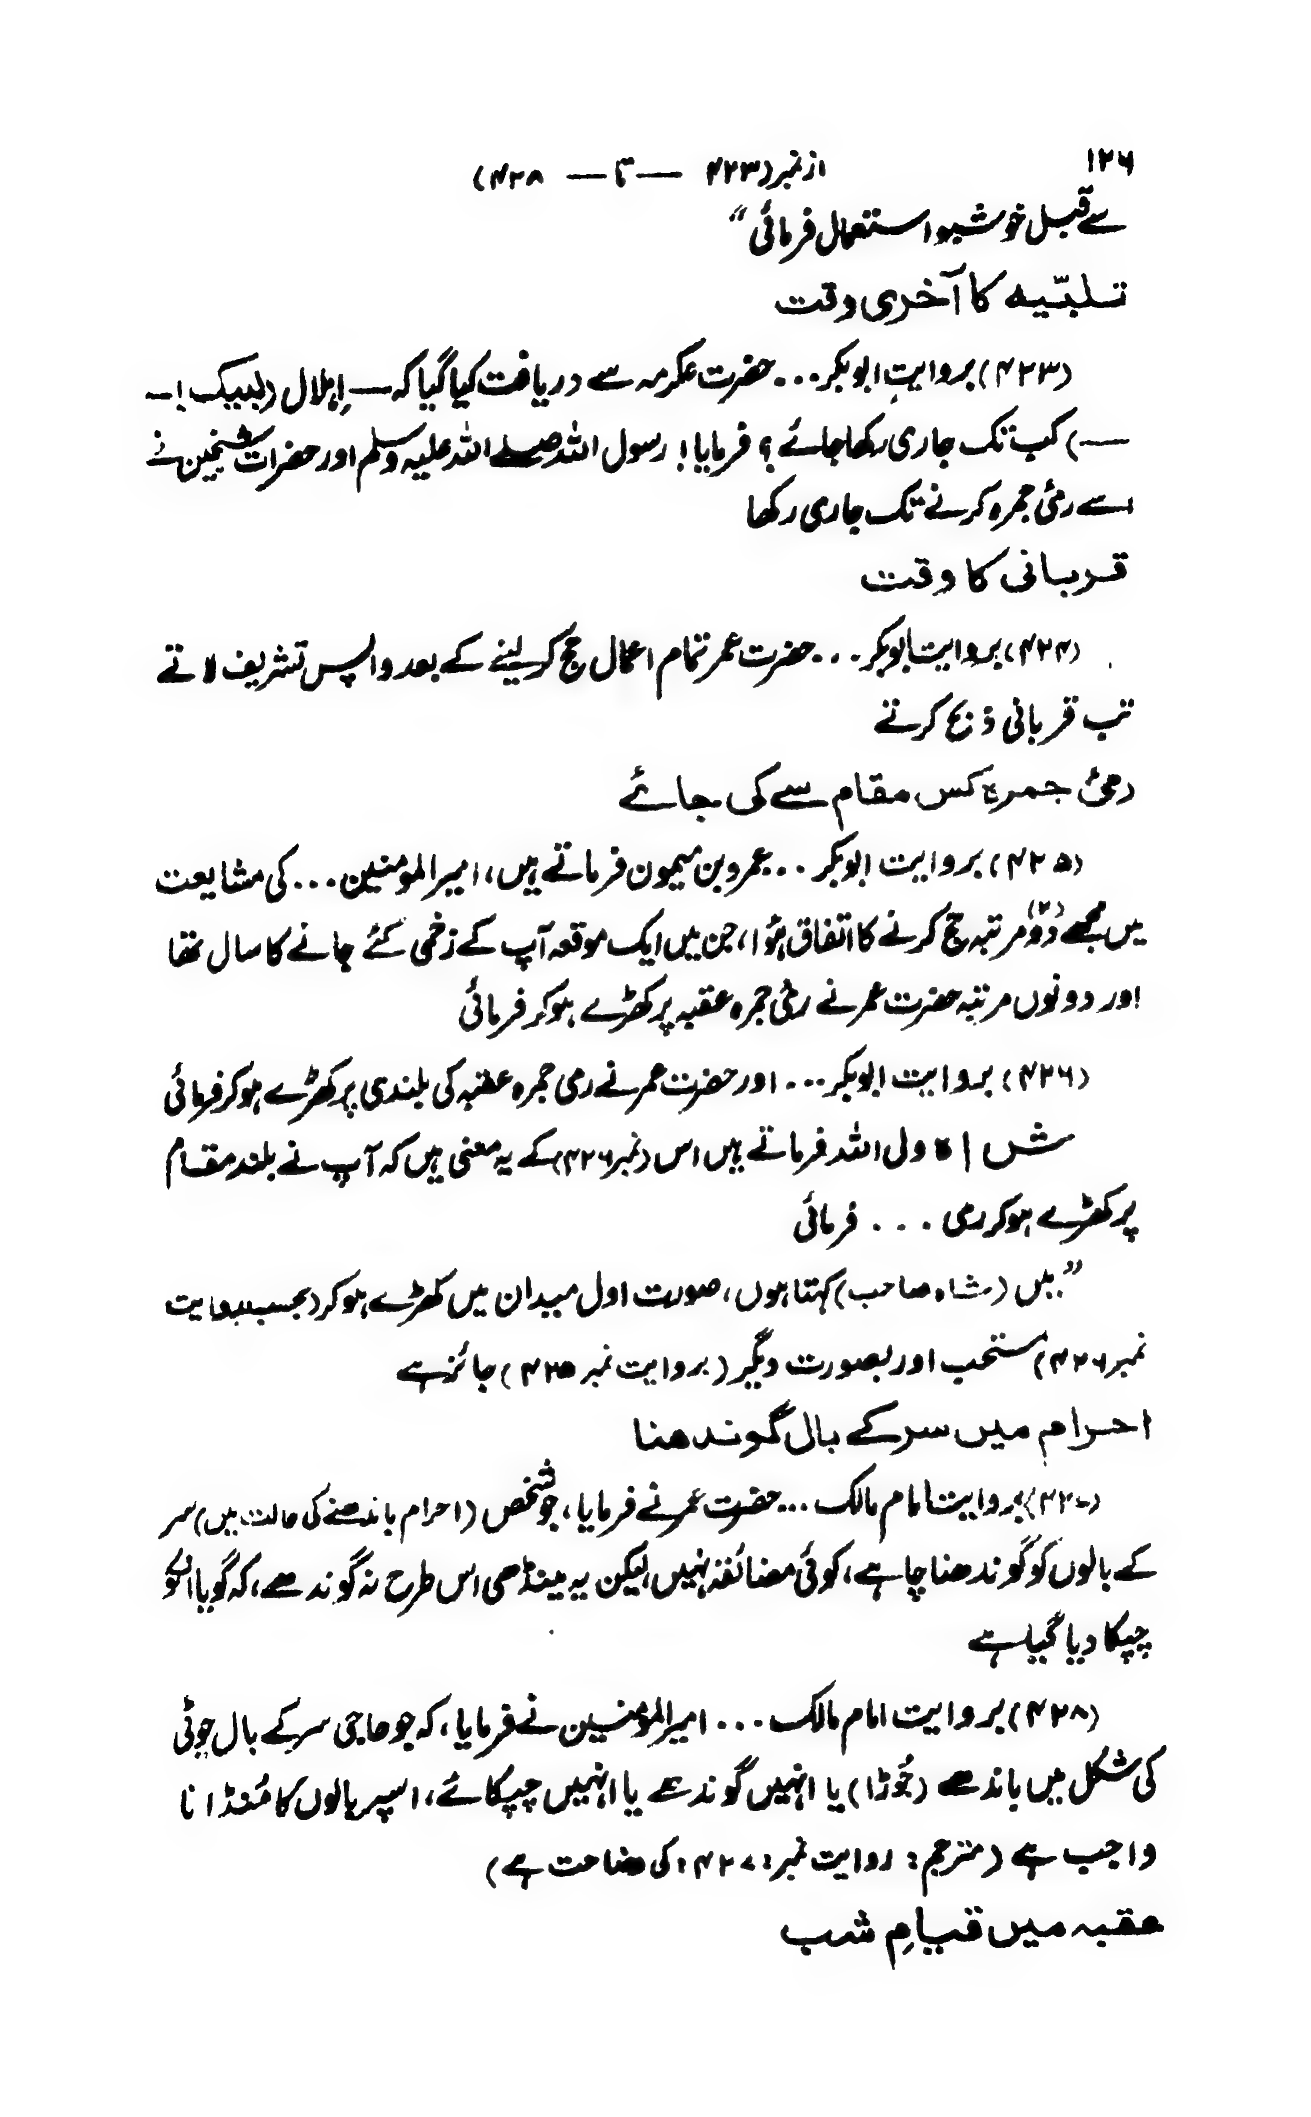 ۱۲۶
از نمبر (۴۲۳ — تا — ۴۲۸)
سے قبل خوشبو استعمال فرمائی"
تلبّیہ کا آخری وقت
(۴۲۳) بروایت ابوبکر... حضرت عکرمہ سے دریافت کیا گیا کہ — اِہلال (لبیک!—
—) کب تک جاری رکھا جائے؟ فرمایا! رسول اللہ صلے اللہ علیہ وسلم اور حضرات شیخین نے
اسے رمئ جمرہ کرنے تک جاری رکھا
قربانی کا وقت
(۴۲۴) بروایت ابوبکر... حضرت عمر تمام اعمال حج کر لینے کے بعد واپس تشریف لاتے
تب قربانی ذبح کرتے
رمئ جمرہ کس مقام سے کی جائے
(۴۲۵) بروایت ابوبکر... عمرو بن میمون فرماتے ہیں، امیرالمومنین... کی مشایعت
میں مجھے دوؔ (۲) مرتبہ حج کرنے کا اتفاق ہؤا، جن میں ایک موقعہ آپ کے زخمی کئے جانے کا سال تھا
اور دونوں مرتبہ حضرت عمر نے رمئ جمرہ عقبہ پر کھڑے ہو کر فرمائی
(۴۲۶) بروایت ابوبکر... اور حضرت عمر نے رمی جمرہ عقبہ کی بلندی پر کھڑے ہو کر فرمائی
شاہ ولی اللہ فرماتے ہیں اس (نمبر ۴۲۶) کے یہ معنی ہیں کہ آپ نے بلند مقام
پر کھڑے ہو کر رمی ... فرمائی
"میں (شاہ صاحب) کہتا ہوں، صورت اول میدان میں کھڑے ہو کر (بحسب روایت
نمبر ۴۲۶) مستحب اور بصورت دیگر (بروایت نمبر ۴۲۵) جائز ہے
احرام میں سر کے بال گوندھنا
(۴۲۷) بروایت امام مالک... حضرت عمر نے فرمایا، جو شخص (احرام باندھنے کی حالت میں) سر
کے بالوں کو گوندھنا چاہے، کوئی مضائقہ نہیں، لیکن یہ مینڈھی اس طرح نہ گوندھے، کہ گویا انکو
چپکا دیا گیا ہے
(۴۲۸) بروایت امام مالک... امیرالمومنین نے فرمایا، کہ جو حاجی سر کے بال چوٹی
کی شکل میں باندھے (جُوڑا) یا انہیں گوندھے یا انہیں چپکائے، اسپر بالوں کا مُنڈانا
واجب ہے (مترجم: روایت نمبر: ۴۲۷: کی وضاحت ہے)
عقبہ میں قیامِ شب